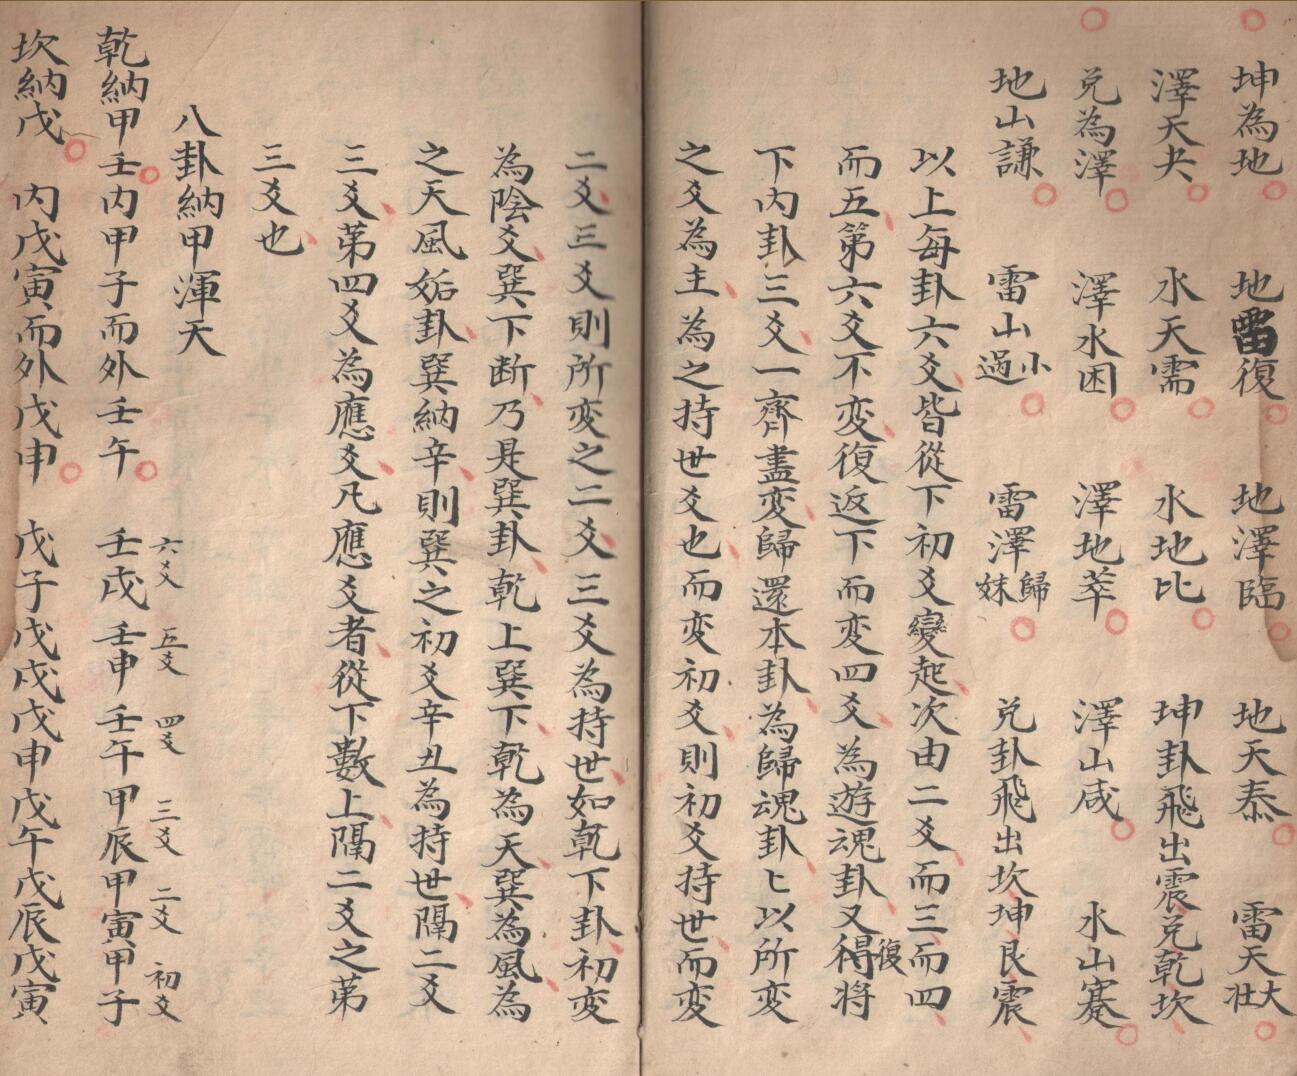 坤為地 地雷復 地澤臨 地天泰 雷天大壯
澤天夬 水天需 水地比 坤卦飛出震兌乾坎
兌為澤 澤水困 澤地萃 澤山咸 水山蹇
地山謙 雷山小過 雷澤歸妹 兌卦飛出坎坤艮震
以上每卦六爻皆從下初爻變起次由二爻而三而四
而五第六爻不变復返下而变四爻為遊魂卦又復得将
下内卦三爻一齊盡变歸還本卦為歸魂卦匕以所变
之爻為主為之持世爻也而变初爻則初爻持世而变
二爻三爻則所变之二爻三爻為持世如乾下卦初变
為陰爻巽下断乃是巽卦乾上巽下乾為天巽為風為
之天風姤卦巽納辛則巽之初爻辛丑為持世隔二爻
三爻苐四爻為應爻凡應爻者從下數上隔二爻之苐
三爻也
八卦納甲渾天
六爻 五爻 四爻 三爻 二爻 初爻
乾納甲壬内甲子而外壬午 壬戌壬申壬午甲辰甲寅甲子
坎納戊 内戊寅而外戊申 戊子戊戌戊申戊午戊辰戊寅